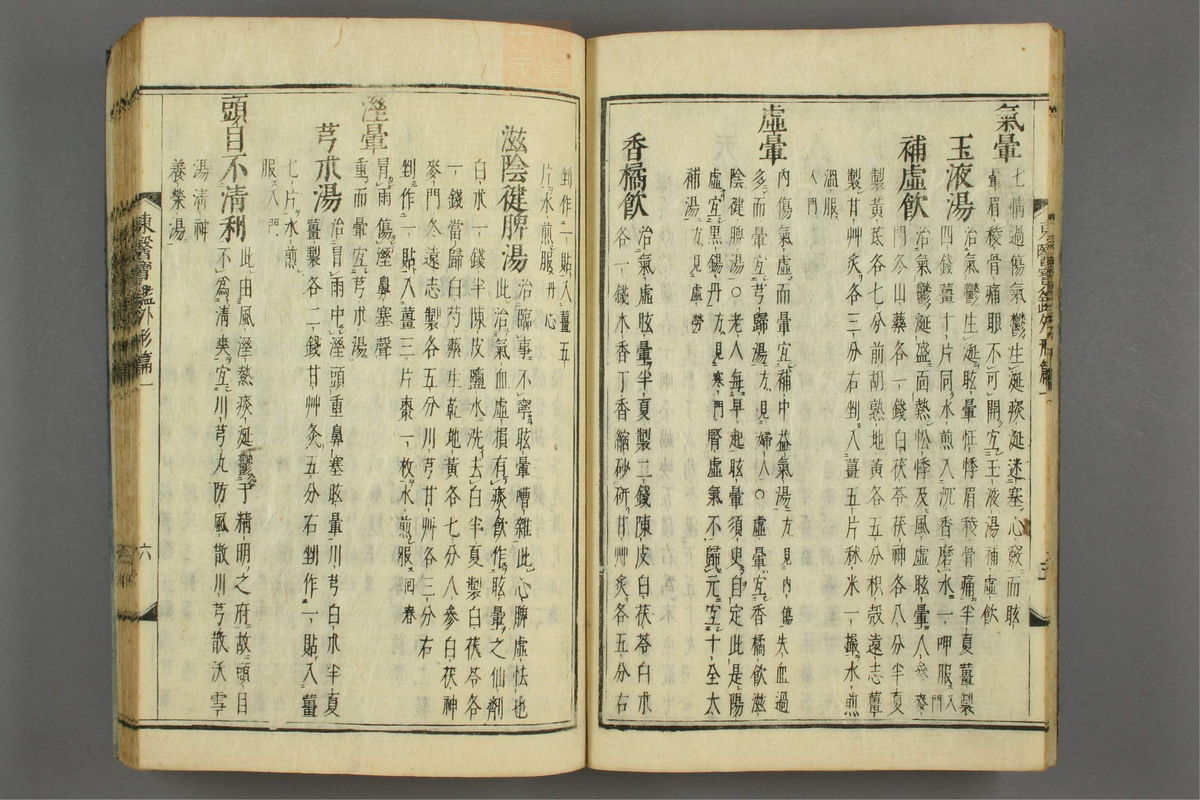 氣暈
七情過傷氣鬱生涎痰涎迷塞心竅而眩
暈眉稜骨痛眼不可開宜玉液湯補虛飲
玉液湯
治氣鬱生涎眩暈怔悸眉稜骨痛半夏薑製
四錢薑十片同水煎入沉香磨水一呷服入門
補虛飲
治氣鬱涎盛面熱忪悸及風虛眩暈人參麥
門冬山藥各一錢白茯苓茯神各八分半夏
製黃芪各七分前胡熟地黃各五分枳殼遠志薑
製甘艸炙各三分右剉入薑五片秫米一撮水煎
溫服
入門
虛暈
內傷氣虛而暈宜補中益氣湯方見內傷失血過
多而暈宜芎歸湯方見婦人○虛暈宜香橘飲滋
陰健脾湯○老人每早起眩暈須臾自定此是陽
虛宜黑錫丹方見寒門腎虛氣不歸元宜十全大
補湯方見虛勞
香橘飲
治氣虛眩暈半夏製二錢陳皮白茯苓白朮
各一錢木香丁香縮砂研甘艸炙各五分右
剉作二貼入薑五
片水煎服丹心
滋陰健脾湯
治臨事不寧眩暈嘈雜此心脾虛怯也
此治氣血虛損有痰飲作眩暈之仙劑
白朮一錢半陳皮鹽水洗去白半夏製白茯苓各
一錢當歸白芍藥生乾地黃各七分人參白茯神
麥門冬遠志製各五分川芎甘艸各三分右
剉作一貼入薑三片棗二枚水煎服回春
濕暈
冒雨傷濕鼻塞聲
重而暈宜芎朮湯
芎朮湯
治冒雨中濕頭重鼻塞眩暈川芎白朮半夏
薑製各二錢甘艸灸五分右剉作一貼入薑
七片水煎
服入門
頭目不清利
此由風濕熱痰涎鬱于精明之府故頭目
不爲清爽宜川芎丸防風散川芎散沃雪
湯清神
養榮湯
東醫寶鑑外形篇一
六